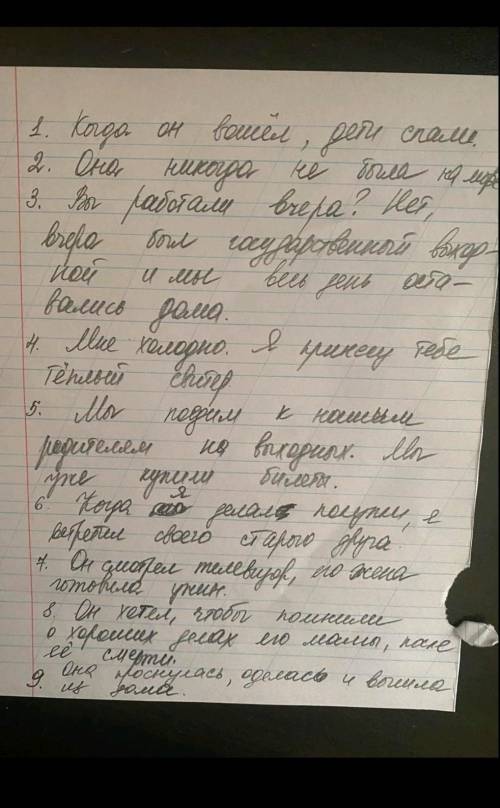 1. Когда он вошёл, дети спали.
2. Она никогда не была на море
3. Вы работали вчера? Нет,
вчера был государственный выход-
ной и мы весь день оста-
вались дома.
4. Мне холодно. Я принесу тебе
тёплый свитер
5. Мы поедим к нашим
родителям на выходных. Мы
уже купили билеты.
6. Когда я делал покупки, я
встретил своего старого друга.
7. Он смотрел телевизор, его жена
готовила ужин.
8. Он хотел, чтобы помнили
о хороших делах его мамы, после
её смерти.
9. Она проснулась, оделась и вышла
из дома.